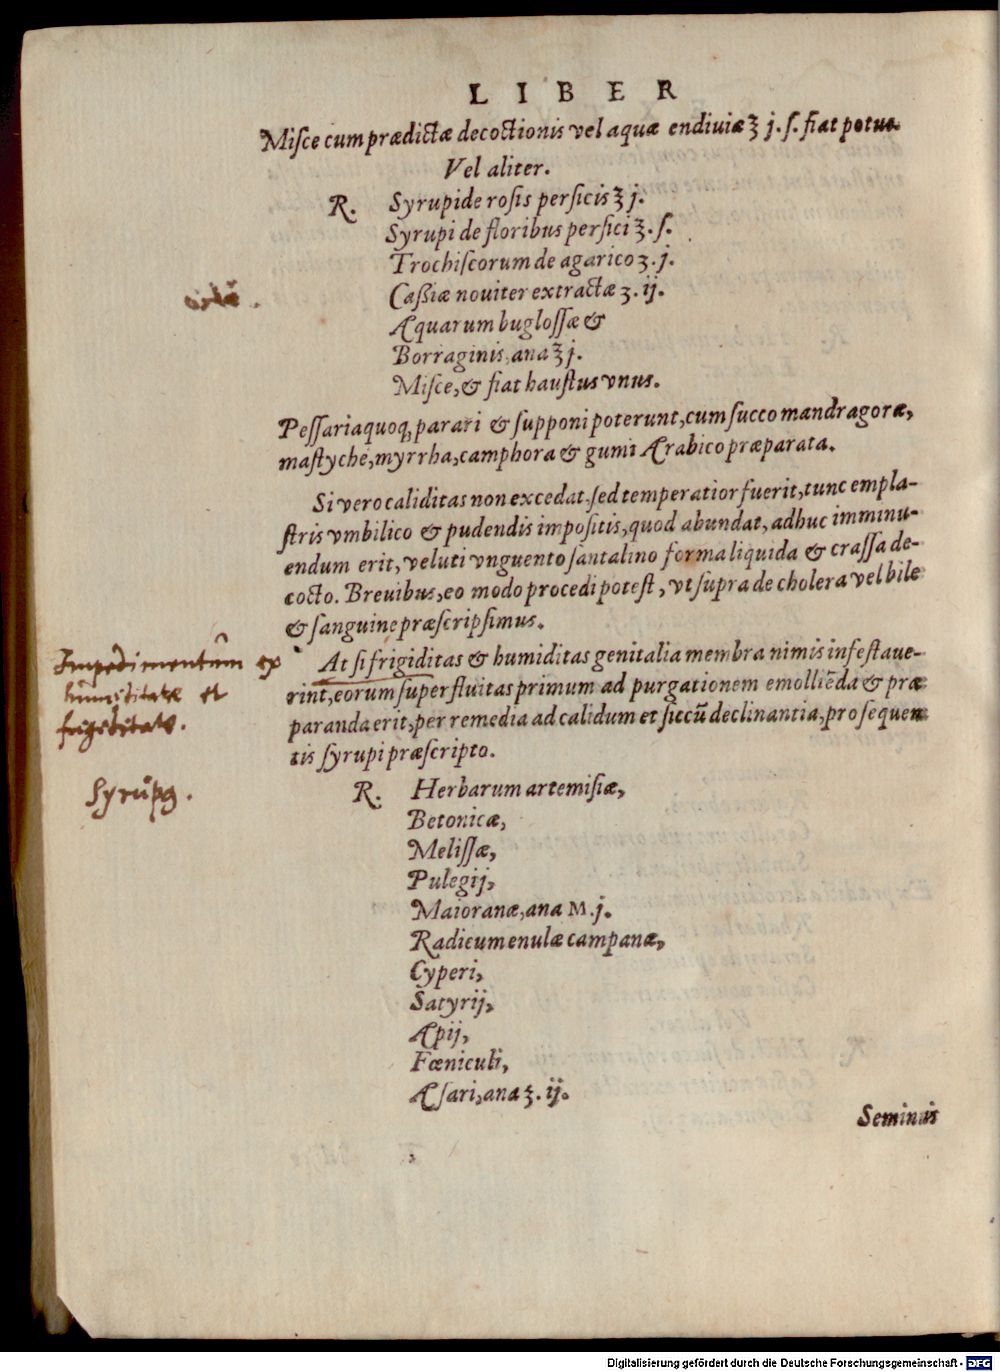 LIBER
Miſce cum prædictæ decoctionis vel aquæ endiuiæ ℥ j. ſ. fiat potus.
Vel aliter.
R. Syrupi de roſis perſicis ℥ j.
Syrupi de floribus perſici ℥. ſ.
Trochiſcorum de agarico ʒ. j.
Caßiæ nouiter extractæ ʒ. ij.
Aquarum bugloſſæ &
Borraginis, ana ℥ j.
Miſce, & fiat hauſtus vnus.
Peſſaria quoq; parari & ſupponi poterunt, cum ſucco mandragoræ,
maſtyche, myrrha, camphora & gumi Arabico præparata.
Si vero caliditas non excedat, ſed temperatior fuerit, tunc empla-
ſtris vmbilico & pudendis impoſitis, quod abundat, adhuc imminu-
endum erit, veluti vnguento ſantalino forma liquida & craſſa de-
cocto. Breuibus, eo modo procedi poteſt, vt ſupra de cholera vel bile
& ſanguine præſcripſimus.
Impedimentum ex
humiditate et
frigiditate.
At ſi frigiditas & humiditas genitalia membra nimis infeſtaue-
rint, eorum ſuperfluitas primum ad purgationem emolliẽda & præ
paranda erit, per remedia ad calidum et ſiccũ declinantia, pro ſequen
tis ſyrupi præſcripto.
Syrupg.
R. Herbarum artemiſiæ,
Betonicæ,
Meliſſæ,
Pulegij,
Maioranæ, ana M. j.
Radicum enulæ campanæ,
Cyperi,
Satyrij,
Apij,
Fœniculi,
Aſari, ana ʒ. ij.
Seminis
Digitalisierung gefördert durch die Deutsche Forschungsgemeinschaft - DFG